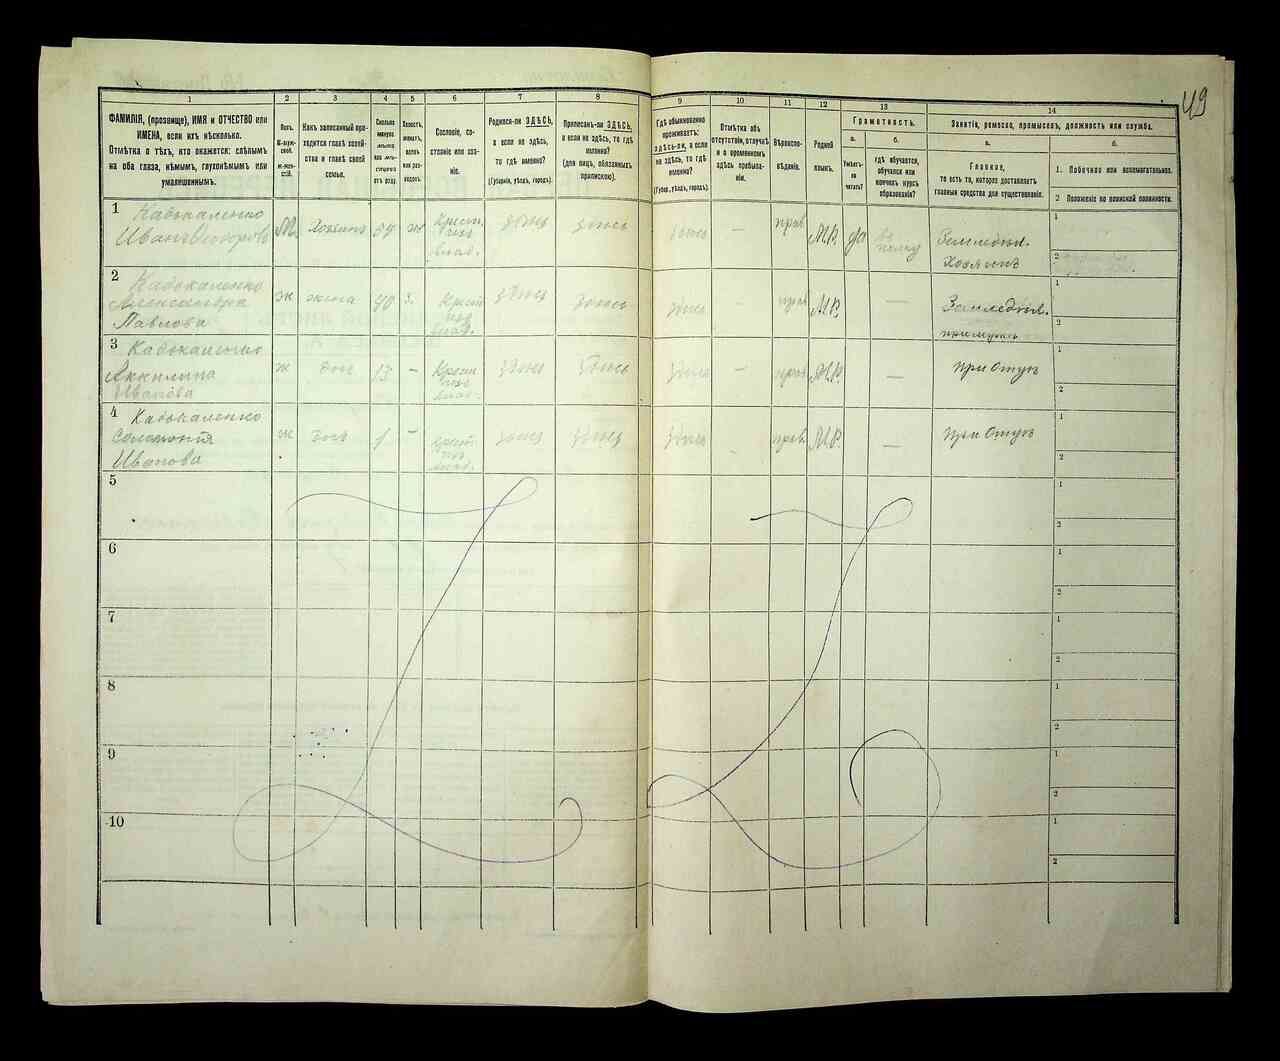 49
1
2
3
4
5
6
7
8
9
10
11
12
13
14
ФАМИЛІЯ, (прозвище), ИМЯ и ОТЧЕСТВО или
ИМЕНА, если ихъ нѣсколько.
Отмѣтка о тѣхъ, кто окажется: слѣпымъ
на оба глаза, нѣмымъ, глухонѣмымъ или
умалишеннымъ.
Полъ.
Какъ записанный при-
ходится главѣ хозяй-
ства и главѣ своей
семьи.
Сколько
минуло
лѣтъ
или мѣ-
сяцевъ
отъ роду.
Холостъ,
женатъ,
вдовъ
или раз-
веденъ.
Сословіе, со-
стояніе или зва-
ніе.
Родился-ли ЗДѢСЬ,
а если не здѣсь,
то гдѣ именно?
(Губернія, уѣздъ, городъ).
Приписанъ-ли ЗДѢСЬ,
а если не здѣсь, то гдѣ
именно?
(для лицъ, обязанныхъ
припискою).
Гдѣ обыкновенно
проживаетъ:
здѣсь-ли, а если
не здѣсь, то гдѣ
именно?
(Губер., уѣздъ, городъ).
Отмѣтка объ
отсутствіи, отлучкѣ
и о временномъ
здѣсь пребыва-
ніи.
Вѣроиспо-
вѣданіе.
Родной
языкъ.
Грамотность.
а.
б.
Умѣетъ-
ли
читать?
гдѣ обучается,
обучался или
кончилъ курсъ
образованія?
Занятіе, ремесло, промыселъ, должность или служба.
а.
б.
Главное,
то есть то, которое доставляетъ
главныя средства для существованія.
1. Побочное или вспомогательное.
2 Положеніе по воинской повинности.
1 Кадькаленко
Иванъ Ѳедоровъ
М. Хозяинъ 54 ж Крест.
здѣсь здѣсь здѣсь — прав М.Р. да Земледѣл.
Хозяинъ
1
2
2 Кадькаленко
Александра
Павлова
ж жена 40 з. Крест
здѣсь здѣсь здѣсь — прав М.Р. — Земледѣл.
при мужѣ
1
2
3 Кадькаленко
Акилина
Иванова
ж дочь 13 — Крест
здѣсь здѣсь здѣсь — прав М.Р — при Отцѣ
1
2
4 Кадькаленко
Соломонія
Иванова
ж дочь 1 — Крест
здѣсь здѣсь здѣсь — прав. М.Р. — при Отцѣ
1
2
5
1
2
6
1
2
7
1
2
8
1
2
9
1
2
10
1
2